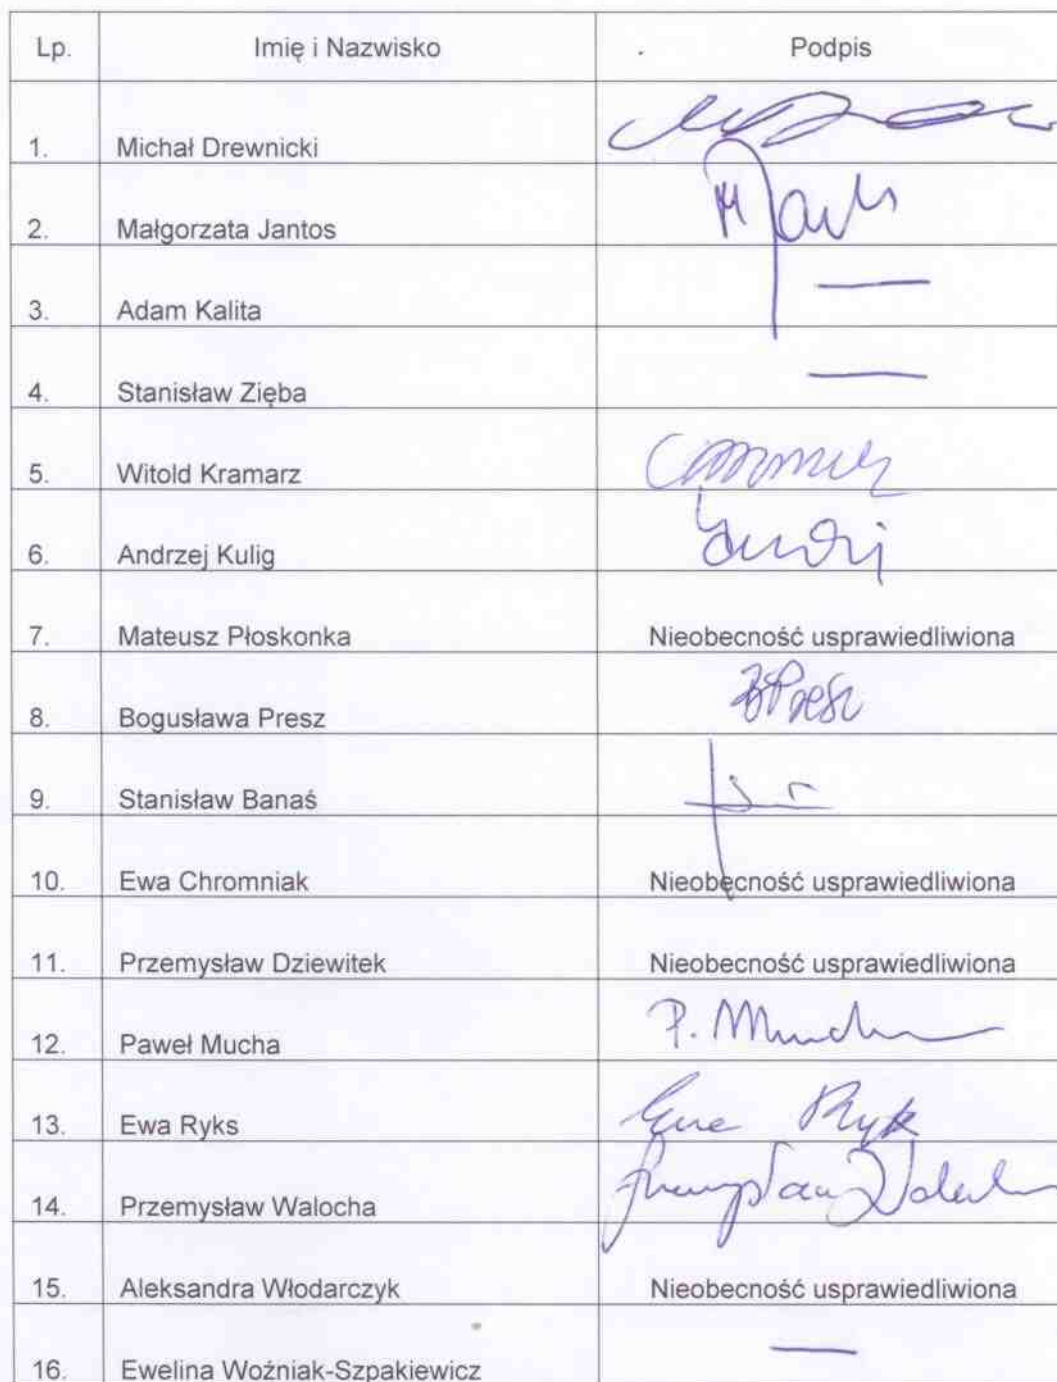 Lp. Imię i Nazwisko Podpis
1. Michał Drewnicki
2. Małgorzata Jantos
3. Adam Kalita —
4. Stanisław Zięba —
5. Witold Kramarz
6. Andrzej Kulig
7. Mateusz Płoskonka Nieobecność usprawiedliwiona
8. Bogusława Presz BPresz
9. Stanisław Banaś
10. Ewa Chromniak Nieobecność usprawiedliwiona
11. Przemysław Dziewitek Nieobecność usprawiedliwiona
12. Paweł Mucha P. Mucha
13. Ewa Ryks Ewa Ryk
14. Przemysław Walocha Przemysław Walocha
15. Aleksandra Włodarczyk Nieobecność usprawiedliwiona
16. Ewelina Woźniak-Szpakiewicz —